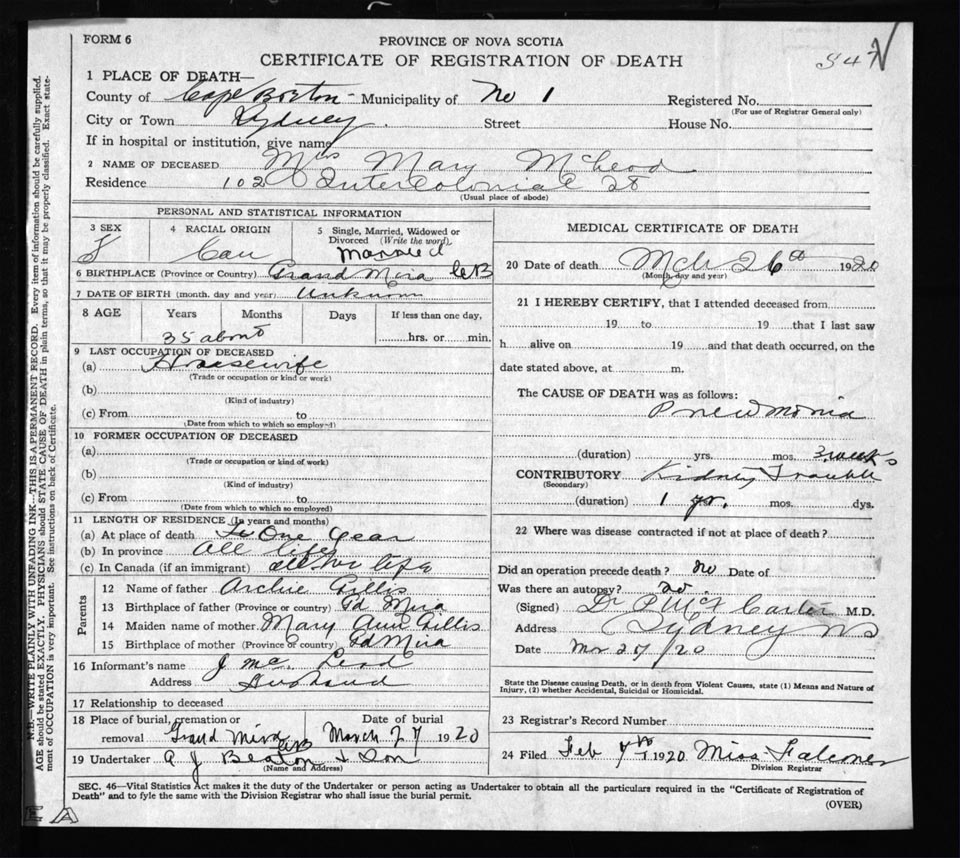 FORM 6
PROVINCE OF NOVA SCOTIA
CERTIFICATE OF REGISTRATION OF DEATH
1 PLACE OF DEATH—
County of Cape Breton Municipality of No 1 Registered No.
(For use of Registrar General only)
City or Town Sydney Street House No.
If in hospital or institution, give name
2 NAME OF DECEASED Mrs Mary McLeod
Residence 102 Intercolonial St
(Usual place of abode)
PERSONAL AND STATISTICAL INFORMATION
3 SEX 4 RACIAL ORIGIN 5 Single, Married, Widowed or Divorced (Write the word)
F Can Married
6 BIRTHPLACE (Province or Country) Grand Mira CB
7 DATE OF BIRTH (month, day and year) Unknown
8 AGE Years Months Days If less than one day,
35 about hrs. or min.
9 LAST OCCUPATION OF DECEASED
(a) Housewife
(Trade or occupation or kind or work)
(b)
(Kind of industry)
(c) From to
(Date from which to which so employed)
10 FORMER OCCUPATION OF DECEASED
(a)
(Trade or occupation or kind of work)
(b)
(Kind of industry)
(c) From to
(Date from which to which so employed)
11 LENGTH OF RESIDENCE (In years and months)
(a) At place of death One Year
(b) In province all life
(c) In Canada (if an immigrant) all her life
Parents
12 Name of father Archie Gillis
13 Birthplace of father (Province or country) Gd Mira
14 Maiden name of mother Mary Ann Gillis
15 Birthplace of mother (Province or country) Gd Mira
16 Informant's name J McLeod
Address Husband
17 Relationship to deceased
18 Place of burial, cremation or removal Date of burial
Grand Mira CB March 27 1920
19 Undertaker A J Beaton & Son
(Name and Address)
MEDICAL CERTIFICATE OF DEATH
20 Date of death Mch 26th 1920
(Month, day and year)
21 I HEREBY CERTIFY, that I attended deceased from
19 to 19 that I last saw
h alive on 19 and that death occurred, on the
date stated above, at m.
The CAUSE OF DEATH was as follows:
Pneumonia
(duration) yrs. mos. 3 weeks
CONTRIBUTORY Kidney Trouble
(Secondary)
(duration) 1 yr. mos. dys.
22 Where was disease contracted if not at place of death?
Did an operation precede death? no Date of
Was there an autopsy? no.
(Signed) Dr Carter M.D.
Address Sydney NS
Date Mar 27/20
State the Disease causing Death, or in death from Violent Causes, state (1) Means and Nature of
Injury, (2) whether Accidental, Suicidal or Homicidal.
23 Registrar's Record Number
24 Filed Feb 7th 1920 Miss Falconer
Division Registrar
SEC. 46—Vital Statistics Act makes it the duty of the Undertaker or person acting as Undertaker to obtain all the particulars required in the "Certificate of Registration of
Death" and to fyle the same with the Division Registrar who shall issue the burial permit.
(OVER)
N.B.—WRITE PLAINLY WITH UNFADING INK—THIS IS A PERMANENT RECORD. Every item of information should be carefully supplied.
AGE should be stated EXACTLY. PHYSICIANS should STATE CAUSE OF DEATH in plain terms, so that it may be properly classified. Exact state-
ment of OCCUPATION is very important. See instructions on back of Certificate.
E A